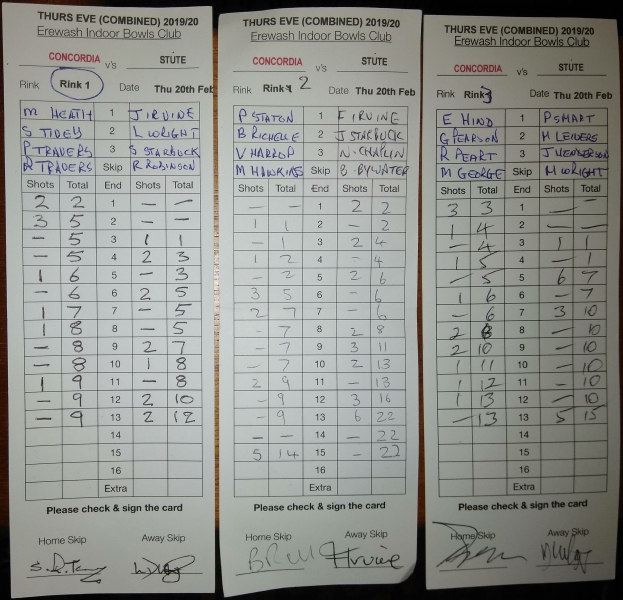 THURS EVE (COMBINED) 2019/20
Erewash Indoor Bowls Club
CONCORDIA v's STUTE
Rink Rink 1 Date Thu 20th Feb
M HEATH 1 J IRVINE
S TIDEY 2 L WRIGHT
P TRADERS 3 S STARBUCK
R TRADERS Skip R ROBINSON
Shots Total End Shots Total
2 2 1 — —
3 5 2 — —
— 5 3 1 1
— 5 4 2 3
1 6 5 — 3
— 6 6 2 5
1 7 7 — 5
1 8 8 — 5
— 8 9 2 7
— 8 10 1 8
1 9 11 — 8
— 9 12 2 10
— 9 13 2 12
14
15
16
Extra
Please check & sign the card
Home Skip Away Skip
THURS EVE (COMBINED) 2019/20
Erewash Indoor Bowls Club
CONCORDIA v's STUTE
Rink Rink 2 Date Thu 20th Feb
P STATON 1 F IRVINE
B RICHELLE 2 J STARBUCK
V HARROP 3 N. CHAPLIN
M HAWKINS Skip B BYWATER
Shots Total End Shots Total
— — 1 2 2
1 1 2 — 2
— 1 3 2 4
1 2 4 — 4
— 2 5 2 6
3 5 6 — 6
2 7 7 — 6
— 7 8 2 8
— 7 9 3 11
— 7 10 2 13
2 9 11 — 13
— 9 12 3 16
— 9 13 6 22
— — 14 — 22
5 14 15 — 22
16
Extra
Please check & sign the card
Home Skip Away Skip
FIrvine
THURS EVE (COMBINED) 2019/20
Erewash Indoor Bowls Club
CONCORDIA v's STUTE
Rink Rink 3 Date Thu 20th Feb
E HIND 1 P SMART
G PEARSON 2 H LEIVERS
R PEART 3 J HENDERSON
M GEORGE Skip M WRIGHT
Shots Total End Shots Total
3 3 1 — —
1 4 2 — —
— 4 3 1 1
1 5 4 — 1
— 5 5 6 7
1 6 6 — 7
— 6 7 3 10
2 8 8 — 10
2 10 9 — 10
1 11 10 — 10
1 12 11 — 10
1 13 12 — 10
— 13 13 5 15
14
15
16
Extra
Please check & sign the card
Home Skip Away Skip